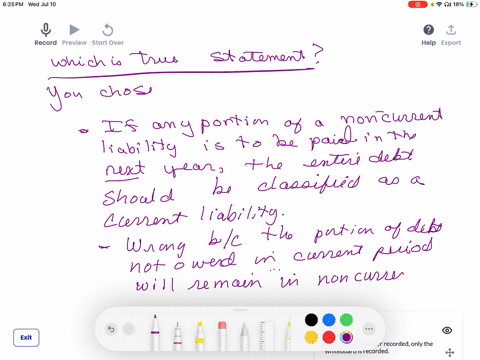 6:25 PM Wed Jul 10
18%
Record Preview Start Over Help Export
which is true statement?
You chos
If any portion of a noncurrent
liability is to be paid in the
next year, the entire debt
should be classified as a
current liability.
- Wrong b/c the portion of debt
not owed in current period
will remain in noncurre
Exit
r recorded, only the
whiteboard is recorded.